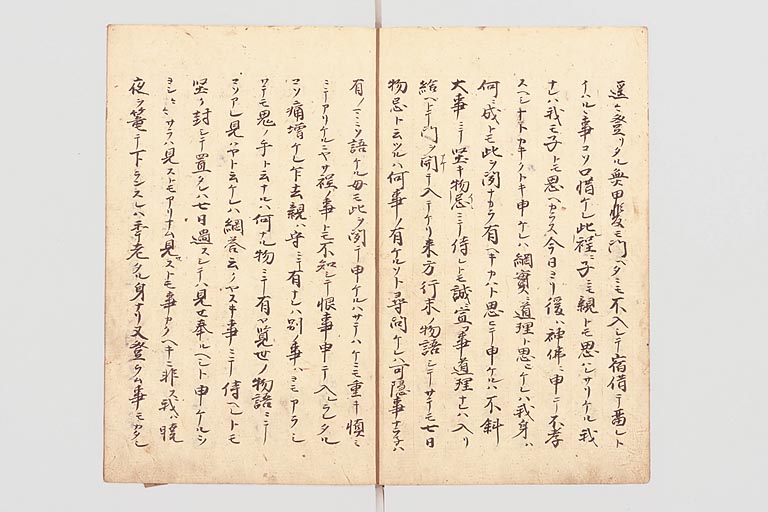 遥々登リタル無甲斐モ門ヘタニモ不入シテ宿借テ留レト
イハル事コソ口惜ケレ此程ニ子ニモ親トモ思ヒシサリケル我
ナレハ我モ子トモ思ヘカラス今日ヨリ後ハ神佛ニ申テ不孝
スヘシナトカキクトキ申ケレハ綱實ニ道理ト思ヒケレハ我身ハ
何ニ成トモ此ヲ聞ナカラ有ヘキカハト思ヒテ申ケルハ不斜
大事ニテ堅キ物忌ミニテ侍レトモ誠ニ宣フ事道理ナレハ入リ
給ヘトテ門ヲ開テ入テケリ来方行末ノ物語シテサテモ七日
物忌ト云ツルハ何事ノ有ケルソト尋問ケレハ可隠事ナラネハ
有ノマヽニソ語ケル母モ此ヲ聞テ申ケルハサテハケニモ重キ慎ミ
ニテアリケルニヤサ程ノ事トモ不知シテ恨事申テ入ラレタル
コソ痛増ケレ乍去親ハ守ニテ有ナレハ別ノ事ハヨモアラシ
ワテモ鬼ノ手ト云ナルハ何ナル物ニテ有ソ覚世ノ物語ニテ
コソアレ見ハヤト云ケレハ綱答云ノヤスキ事ニテ侍ヘレトモ
堅ク封シテ置タレハ七日過スシテハ見セ奉ルヘシト申ケルシ
ヨシヨシサラハ見ストモアリナム見ストモ事カクヘキニ非ス我ハ暁
夜ヲ篭テ下ランスレハ季老タル身ナリ又登ラム事モカタシ